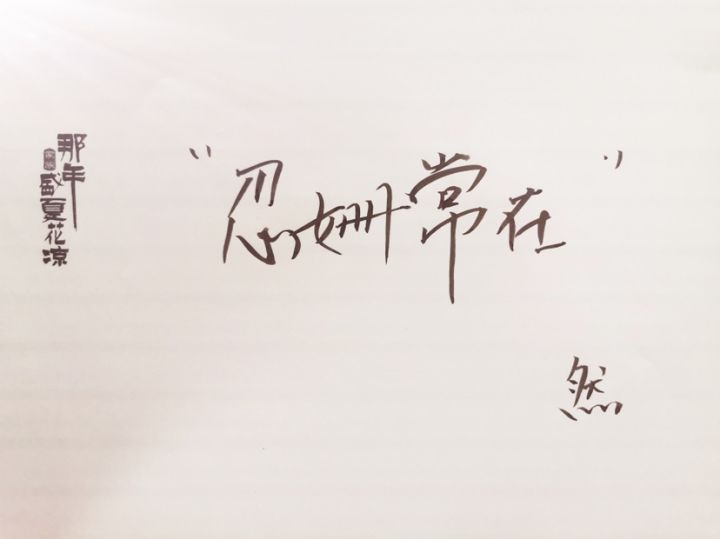 那年
盛夏花凉
“忍姗常在”
然